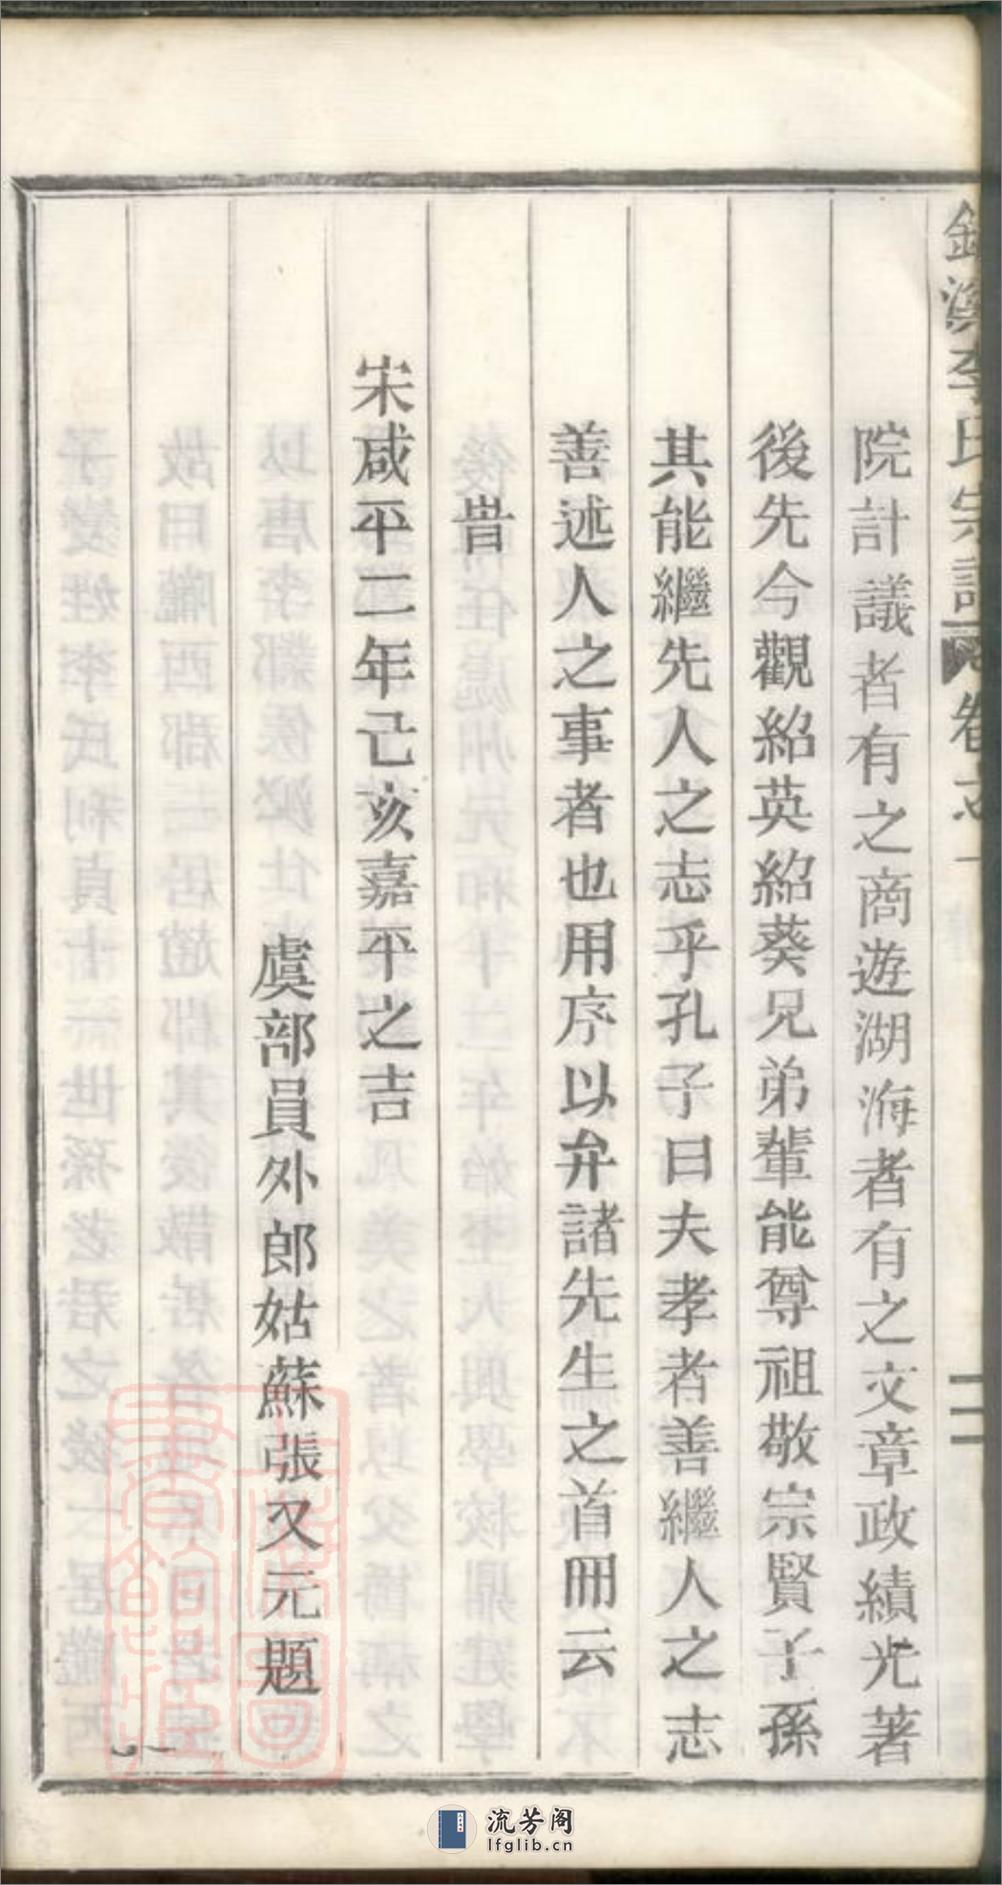 溪李氏宗譜 卷之一 二
院計議者有之商遊湖海者有之文章政績光著
後先今觀紹英紹葵兄弟輩能尊祖敬宗賢子孫
其能繼先人之志乎孔子曰夫孝者善繼人之志
善述人之事者也用序以弁諸先生之首冊云
旹
宋咸平二年己亥嘉平之吉
虞部員外郎姑蘇張又元題
流芳阁
lfglib.cn